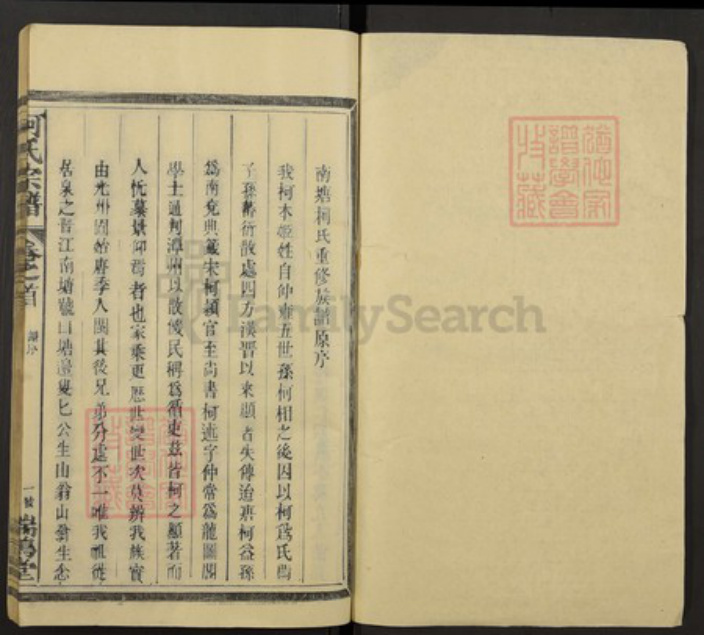 南塘柯氏重修族譜原序
我柯本姬姓自仲雍五世孫柯相之後因以柯爲氏
子孫蕃衍散處四方漢晉以來顯者失傳迨唐柯益孫
爲南兗典籤宋柯頴官至尚書柯述字仲常爲龍圖閣
學士通判漳州以散慢民稱爲循吏茲皆柯之顯著而
人忻慕景仰焉者也家乘更歷世變世次莫辨我族實
由光州固始唐季入閩其後兄弟分處不一惟我祖從
居泉之晉江南塘號曰塘邊叟七公生山翁山翁生念
柯氏宗譜
卷之首
譜序
一
瑞鵲堂
FamilySearch
猶他家
譜學會
收藏